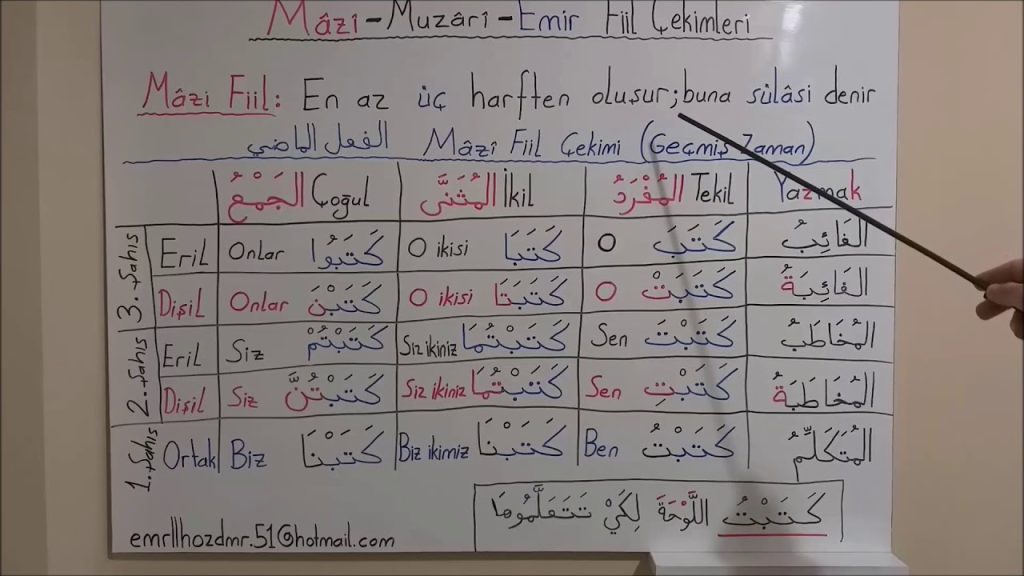 Mâzî-Muzârî-Emir Fiil Çekimleri
Mâzi Fiil: En az üç harften oluşur; buna sülâsi denir
الفعل الماضي Mâzî Fiil Çekimi (Geçmiş Zaman)
الْجَمْعُ Çoğul الْمُثَنَّى İkil الْمُفْرَدُ Tekil Yazmak
3. Şahıs Eril Onlar كَتَبُوا O ikisi كَتَبَا O كَتَبَ الْغَائِبُ
Dişil Onlar كَتَبْنَ O ikisi كَتَبَتَا O كَتَبَتْ الْغَائِبَةُ
2. Şahıs Eril Siz كَتَبْتُمْ Siz ikiniz كَتَبْتُمَا Sen كَتَبْتَ الْمُخَاطَبُ
Dişil Siz كَتَبْتُنَّ Siz ikiniz كَتَبْتُمَا Sen كَتَبْتِ الْمُخَاطَبَةُ
1. Şahıs Ortak Biz كَتَبْنَا Biz ikimiz كَتَبْنَا Ben كَتَبْتُ الْمُتَكَلِّمُ
كَتَبْتُ اللَّوْحَةَ لِكَيْ تَتَعَلَّمُوهَا
emrllhozdmr.51@hotmail.com